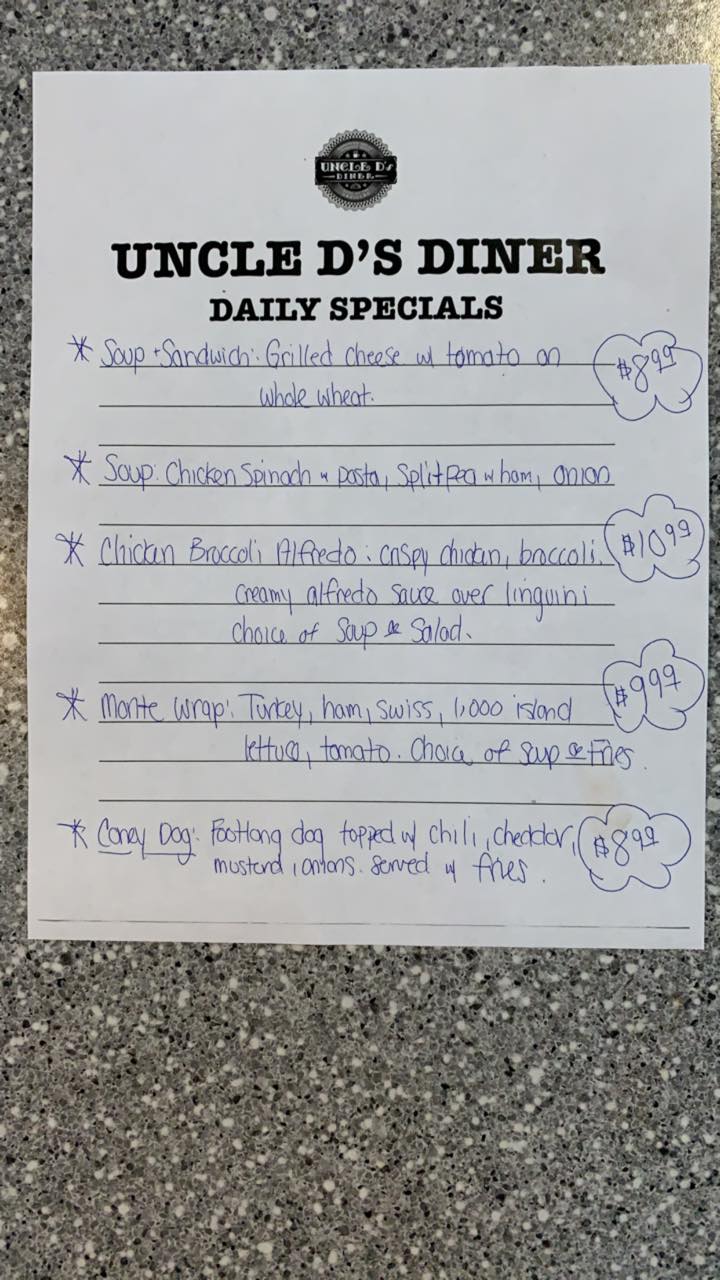 UNCLE D's
DINER
UNCLE D'S DINER
DAILY SPECIALS
* Soup + Sandwich: Grilled cheese w/ tomato on $8.99
whole wheat.
* Soup: Chicken Spinach w pasta, Split pea w ham, onion
* Chicken Broccoli Alfredo: crispy chicken, broccoli. $10.99
creamy alfredo sauce over linguini
choice of Soup or Salad.
* Monte Wrap: Turkey, ham, swiss, 1,000 island $9.99
lettuce, tomato. Choice of soup or Fries.
* Coney Dog: Footlong dog topped w/ chili, cheddar, $8.99
mustard, onions. Served w/ fries.